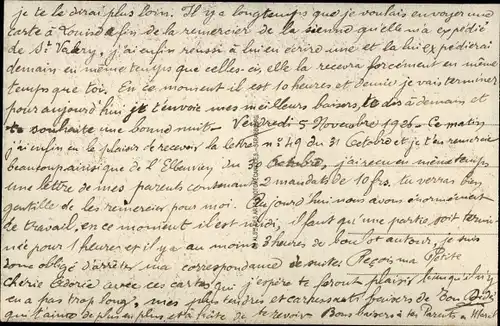 je te le dirai plus loin. Il y a longtemps que je voulais envoyer une
carte à Louise afin de la remercier de la sienne qu'elle m'a expédié
de St Valery, j'ai enfin réussi à lui en écrire une et la lui expédierai
demain en même temps que celles-ci, elle la recevra forcément en même
temps que toi. En ce moment il est 10 heures et demie je vais terminer
pour aujourd'hui je t'envoie mes meilleurs baisers, te dis à demain et
te souhaite une bonne nuit - Vendredi 5 Novembre 1926 - Ce matin
j'ai enfin eu le plaisir de recevoir la lettre nº 49 du 31 Octobre et je t'en remercie
beaucoup ainsi que de l' du 30 Octobre, j'ai reçu en même temps
une lettre de mes parents contenant 2 mandats de 10 frs, tu verras bien
gentille de les remercier pour moi. Aujourd'hui nous avons énormément
de travail, en ce moment il est midi, il faut qu'une partie soit termi-
née pour 1 heure et il y a au moins 3 heures de boulot autour, je suis
donc obligé d'arrêter ma correspondance de suite. Reçois ma Petite
Chérie Adorée avec ces cartes qui j'espère te feront plaisir bien qu'il n'y
en a pas trop long, mes plus tendres et caressants baisers de ton
qui t'aime de plus en plus et a hâte de te revoir Bons baisers à tes Parents - Marcel